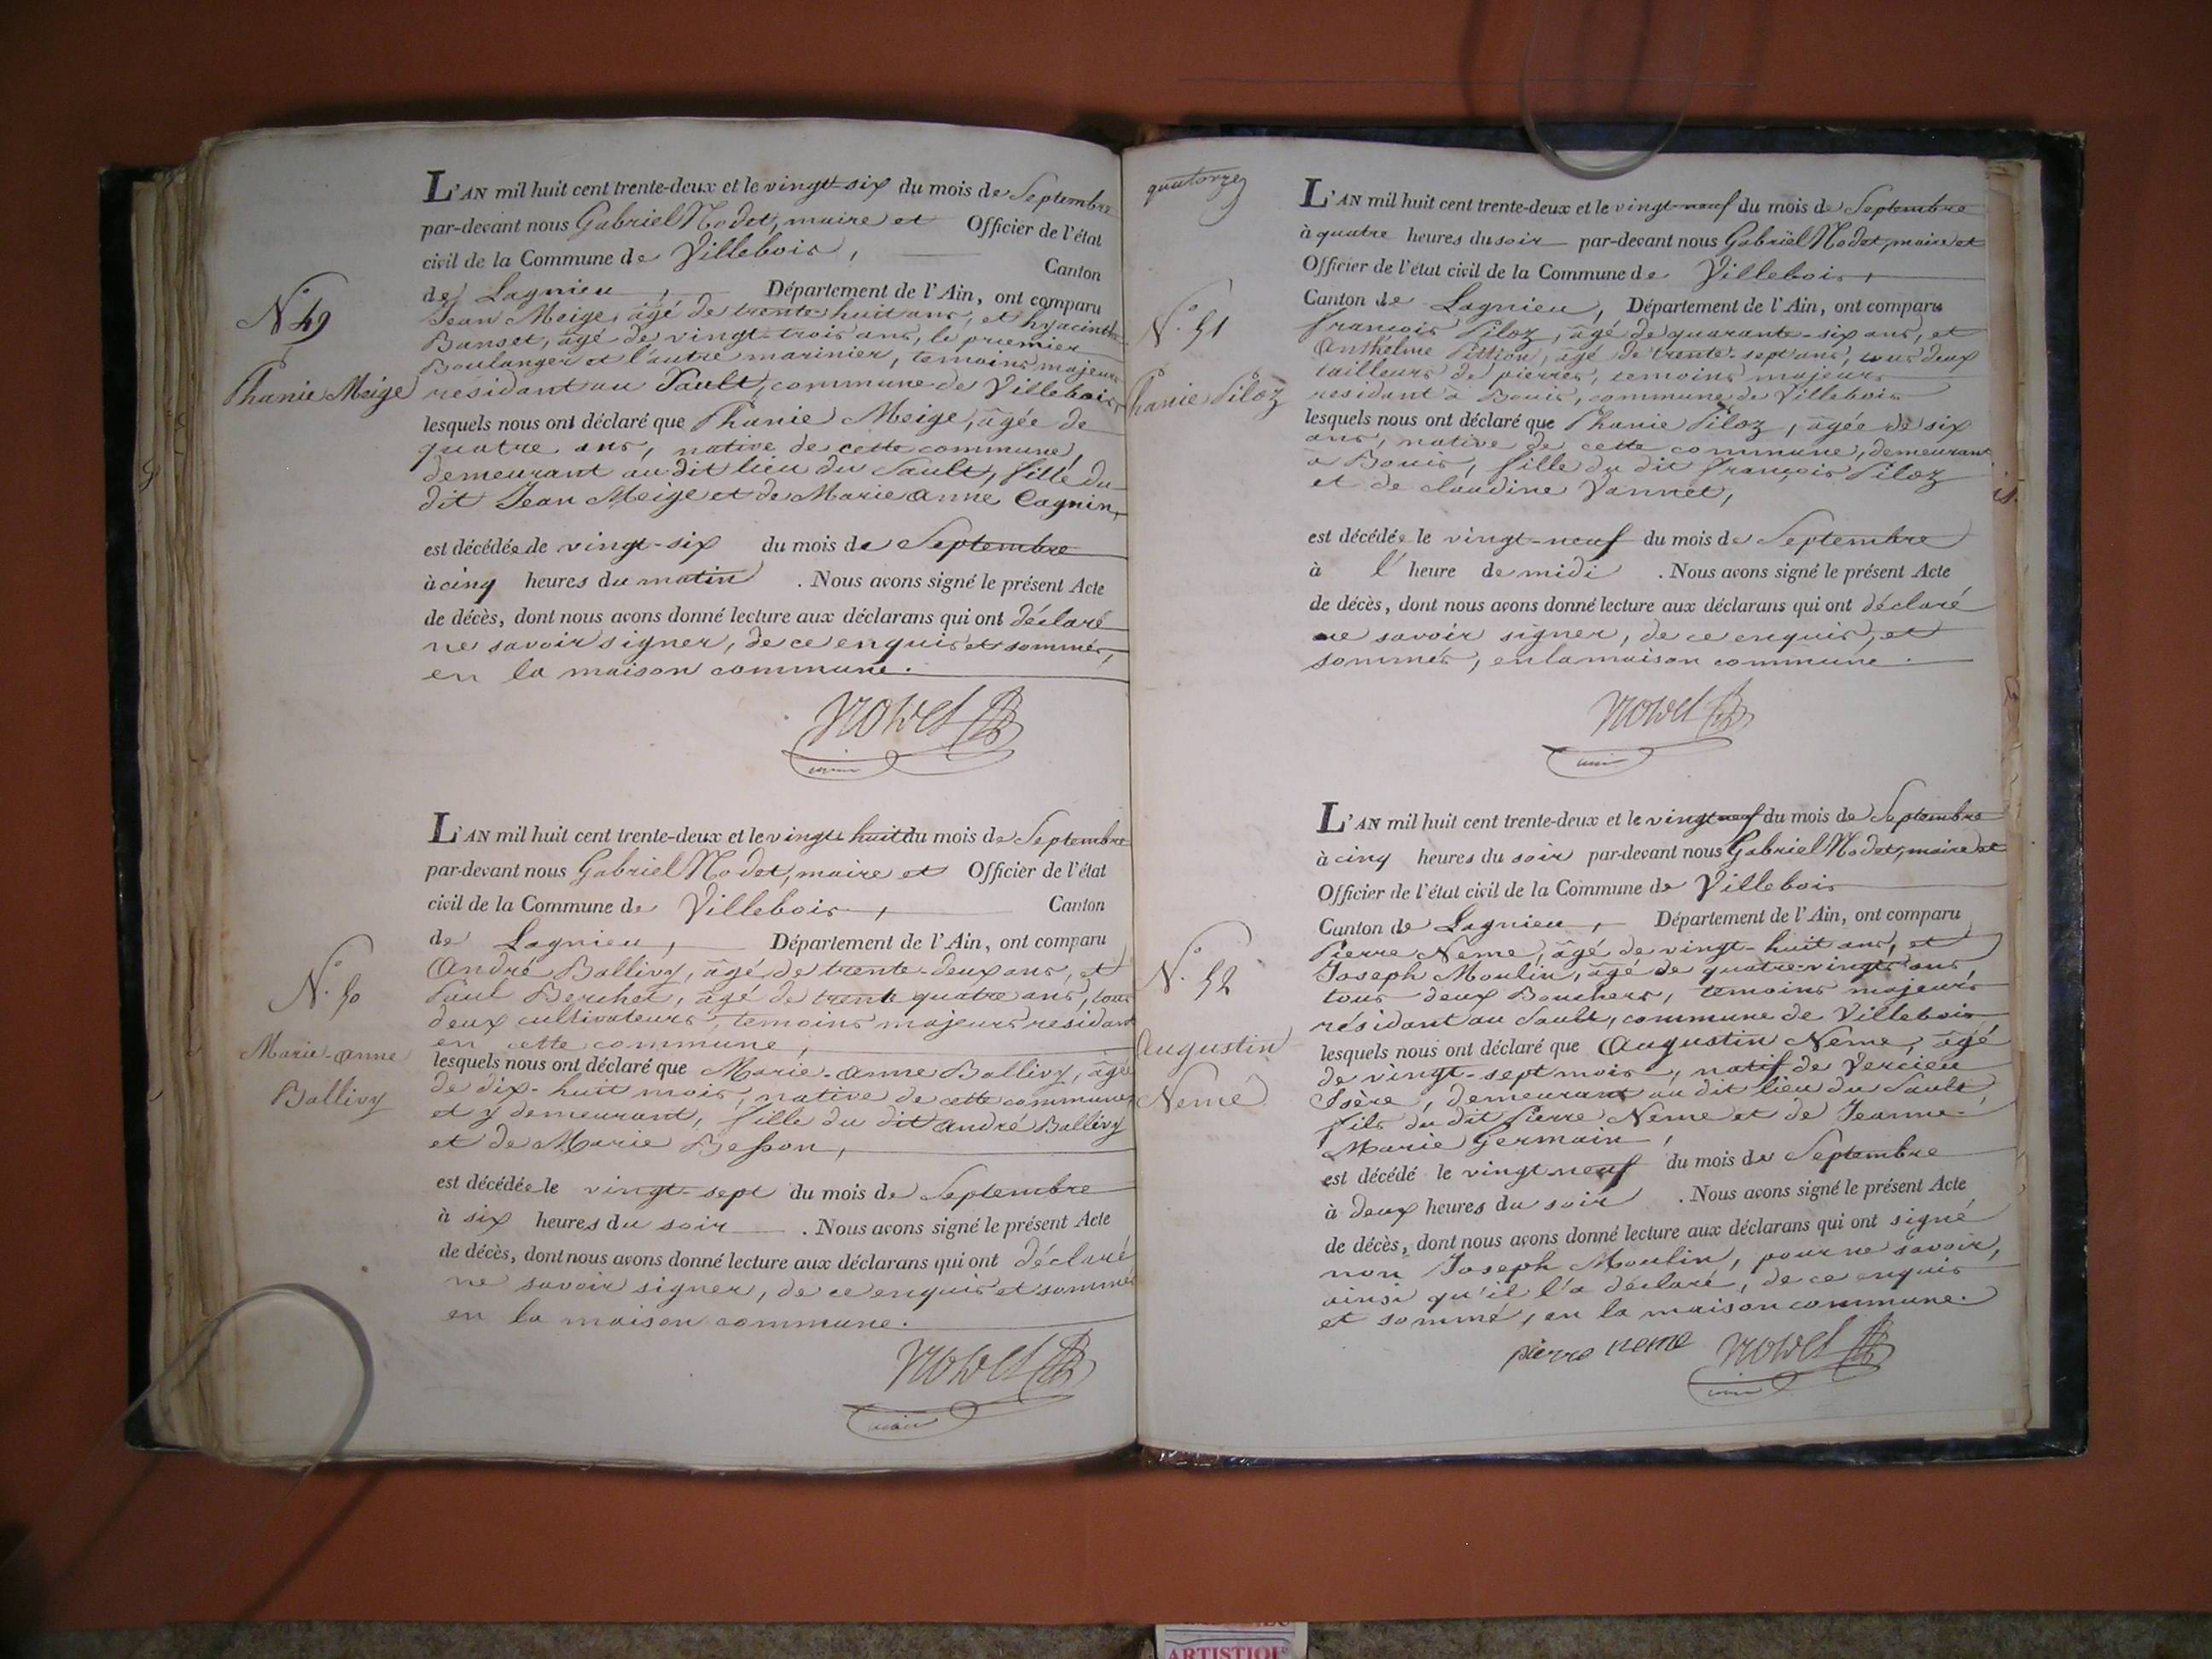 L'AN mil huit cent trente-deux et le vingt-six du mois de Septembre
par-devant nous Gabriel Nodet, maire et Officier de l'état
civil de la Commune de Villebois, Canton
de Lagnieu, Département de l'Ain, ont comparu
Jean Meige, âgé de trente huit ans, et hyacinthe
Banset, âgé de vingt-trois ans, le premier
Boulanger et l'autre marinier, temoins majeurs
residant au Sault, commune de Villebois,
N.° 49
Phanie Meige
lesquels nous ont déclaré que Phanie Meige, âgée de
quatre ans, native de cette commune,
demeurant au dit lieu du Sault, fille du
dit Jean Meige et de Marie anne Cagnin,
est décédée le vingt-six du mois de Septembre
à cinq heures du matin . Nous avons signé le présent Acte
de décès, dont nous avons donné lecture aux déclarans qui ont déclaré
ne savoir signer, de ce enquis et sommés,
en la maison commune.
Nodet
maire
L'AN mil huit cent trente-deux et le vingt huit du mois de Septembre
par-devant nous Gabriel Nodet, maire et Officier de l'état
civil de la Commune de Villebois, Canton
de Lagnieu, Département de l'Ain, ont comparu
André Ballivy, âgé de trente-deux ans, et
Paul Berchet, âgé de trente quatre ans, tous
deux cultivateurs, temoins majeurs residant
en cette commune,
N.° 50
Marie-anne
Ballivy
lesquels nous ont déclaré que Marie-anne Ballivy, âgée
de dix-huit mois, native de cette commune
et y demeurant, fille du dit André Ballivy
et de Marie Besson,
est décédée le vingt-sept du mois de Septembre
à six heures du soir . Nous avons signé le présent Acte
de décès, dont nous avons donné lecture aux déclarans qui ont déclaré
ne savoir signer, de ce enquis et sommés
en la maison commune.
Nodet
maire
quatorze
L'AN mil huit cent trente-deux et le vingt-neuf du mois de Septembre
à quatre heures du soir par-devant nous Gabriel Nodet, maire et
Officier de l'état civil de la Commune de Villebois,
Canton de Lagnieu, Département de l'Ain, ont comparu
françois Piloz, âgé de quarante-six ans, et
Anthelme Pittion, âgé de trente-sept ans, tous deux
tailleurs de pierres, temoins majeurs
residant à Bouis, commune de Villebois
N.° 51
Phanie Piloz
lesquels nous ont déclaré que Phanie Piloz, âgée de six
ans, native de cette commune, demeurant
à Bouis, fille du dit françois Piloz
et de claudine Vannet,
est décédée le vingt-neuf du mois de Septembre
à l'heure de midi . Nous avons signé le présent Acte
de décès, dont nous avons donné lecture aux déclarans qui ont déclaré
ne savoir signer, de ce enquis, et
sommés, en la maison commune.
Nodet
maire
L'AN mil huit cent trente-deux et le vingt neuf du mois de Septembre
à cinq heures du soir par-devant nous Gabriel Nodet, maire et
Officier de l'état civil de la Commune de Villebois
Canton de Lagnieu, Département de l'Ain, ont comparu
Pierre Neme, âgé de vingt-huit ans, et
Joseph Moulin, âgé de quatre-vingts ans,
tous deux Bouchers, temoins majeurs
résidant au Sault, commune de Villebois
N.° 52
Augustin
Neme
lesquels nous ont déclaré que Augustin Neme, âgé
de vingt-sept mois, natif de Vercieu
Isère, demeurant au dit lieu du Sault,
fils du dit Pierre Neme et de Jeanne-
Marie Germain,
est décédé le vingt neuf du mois de Septembre
à deux heures du soir . Nous avons signé le présent Acte
de décès, dont nous avons donné lecture aux déclarans qui ont signé
non Joseph Moulin, pour ne savoir,
ainsi qu'il l'a déclaré, de ce enquis
et sommé, en la maison commune.
pierre neme Nodet
maire
ARTISTIQUE